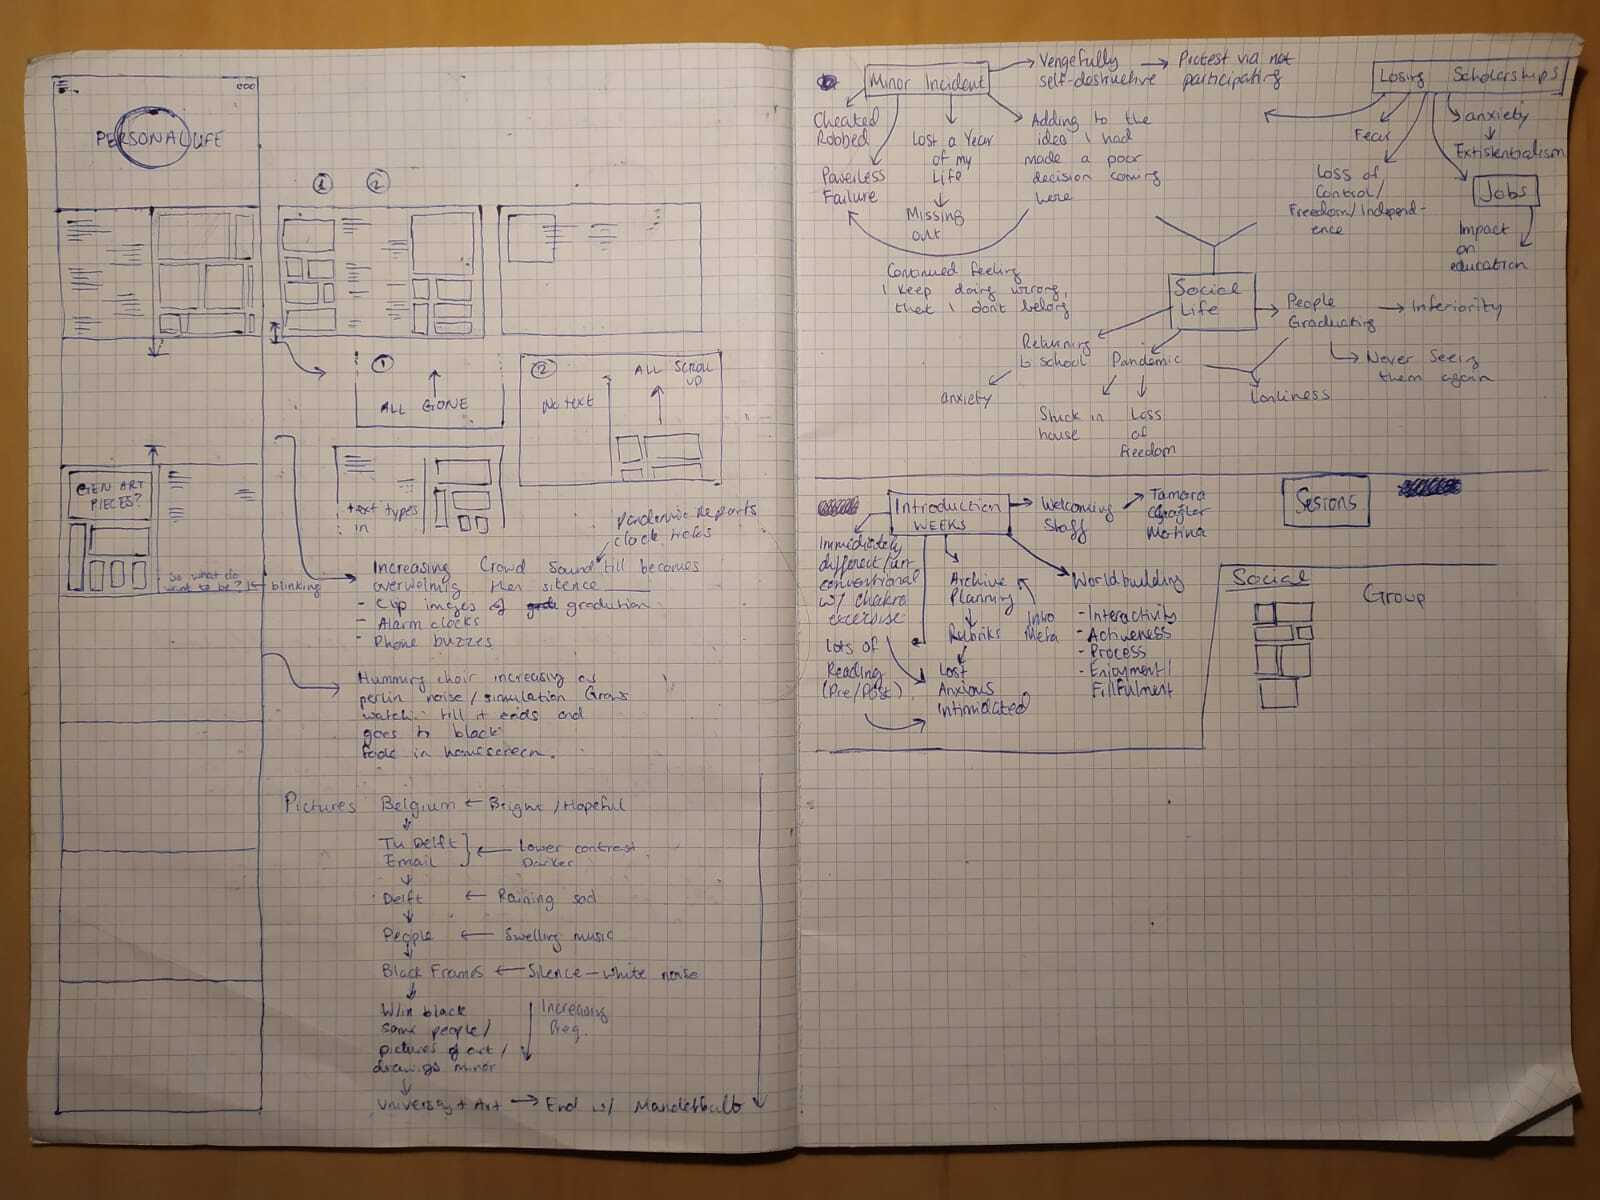 PERSONAL LIFE
① ②
①
ALL GONE
②
No text
ALL SCROLL
UP
GEN ART
PIECES?
So what do
want to be? is blinking
text types
in
pandemic reports
clock ticks
Increasing Crowd Sound till becomes
overwelming then silence
- Clip images of gradution
- Alarm clocks
- Phone buzzes
Humming choir increasing as
perlin noise / simulation Grows
watch till it ends and
goes to black
Fade in homescreen.
Pictures Belgium ← Bright / Hopeful
Tu Delft
Email
← Lower contrast
Darker
Delft ← Raining sad
People ← Swelling music
Black Frames ← Silence - white noise
W/in black
same people /
pictures of art /
drawings minor
Increasing
freq.
University + Art → End w/ Mandelbulb
Minor Incident
Vengefully
self-destructive
→ Protest via not
participating
Cheated
Robbed
Powerless
Failure
Lost a Year
of my
Life
Missing
out
Adding to the
idea I had
made a poor
decision coming
here
Continued feeling
I keep doing wrong,
that I don't belong
Losing Scholarships
Fear
anxiety
Extistentialism
Loss of
Control/
Freedom/Independ-
ence
Jobs
Impact
on
education
Social
Life
People
Graduating
→ Inferiority
Never Seeing
them again
Returning
to school
Pandemic
anxiety
Stuck in
house
Loss
of
freedom
Lonliness
Introduction
WEEKS
Welcoming
Staff
Tamara
Martina
Immediately
different/art
conventional
w/ chakra
exercise
Archive
Planning
Rubriks
Intro
Meta
Lots of
Reading
(Pre/Post)
Lost
Anxious
Intimidated
Worldbuilding
- Interactivity
- Activeness
- Process
- Enjoyment/
Fillfulment
Sesions
Social
Group